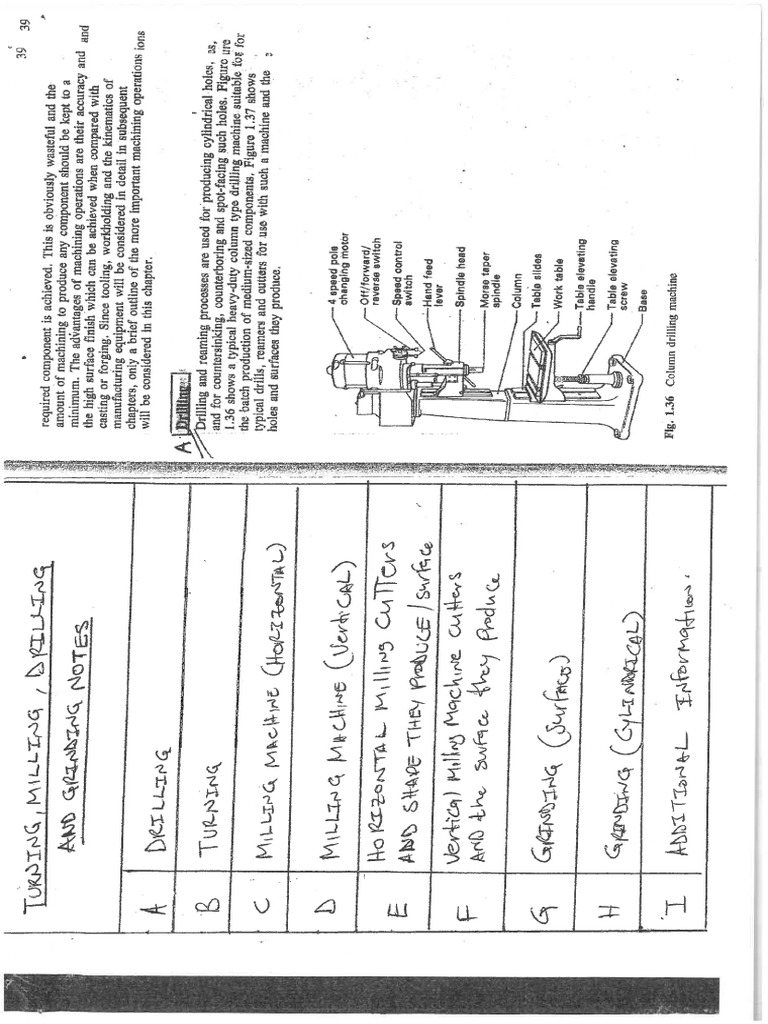 TURNING, MILLING, DRILLING
AND GRINDING NOTES
A DRILLING
B TURNING
C MILLING MACHINE (HORIZONTAL)
D MILLING MACHINE (Vertical)
E HORIZONTAL Milling CUTTERS
AND SHAPE THEY PRODUCE/surface
F Vertical Milling Machine cutters
AND the surface they Produce
G GRINDING (surface)
H GRINDING (CYLINDRICAL)
I ADDITIONAL INFORMATION.
39 39
required component is achieved. This is obviously wasteful and the
amount of machining to produce any component should be kept to a
minimum. The advantages of machining operations are their accuracy and and
the high surface finish which can be achieved when compared with
casting or forging. Since tooling, workholding and the kinematics of
manufacturing equipment will be considered in detail in subsequent
chapters, only a brief outline of the more important machining operations ions
will be considered in this chapter.
A Drilling
Drilling and reaming processes are used for producing cylindrical holes, as,
and for countersinking, counterboring and spot-facing such holes. Figure ure
1.36 shows a typical heavy-duty column type drilling machine suitable for for
the batch production of medium-sized components. Figure 1.37 shows
typical drills, reamers and cutters for use with such a machine and the
holes and surfaces they produce.
4 speed pole
changing motor
Off/forward/
reverse switch
Speed control
switch
Hand feed
lever
Spindle head
Morse taper
spindle
Column
Table slides
Work table
Table elevating
handle
Table elevating
screw
Base
Fig. 1.36 Column drilling machine